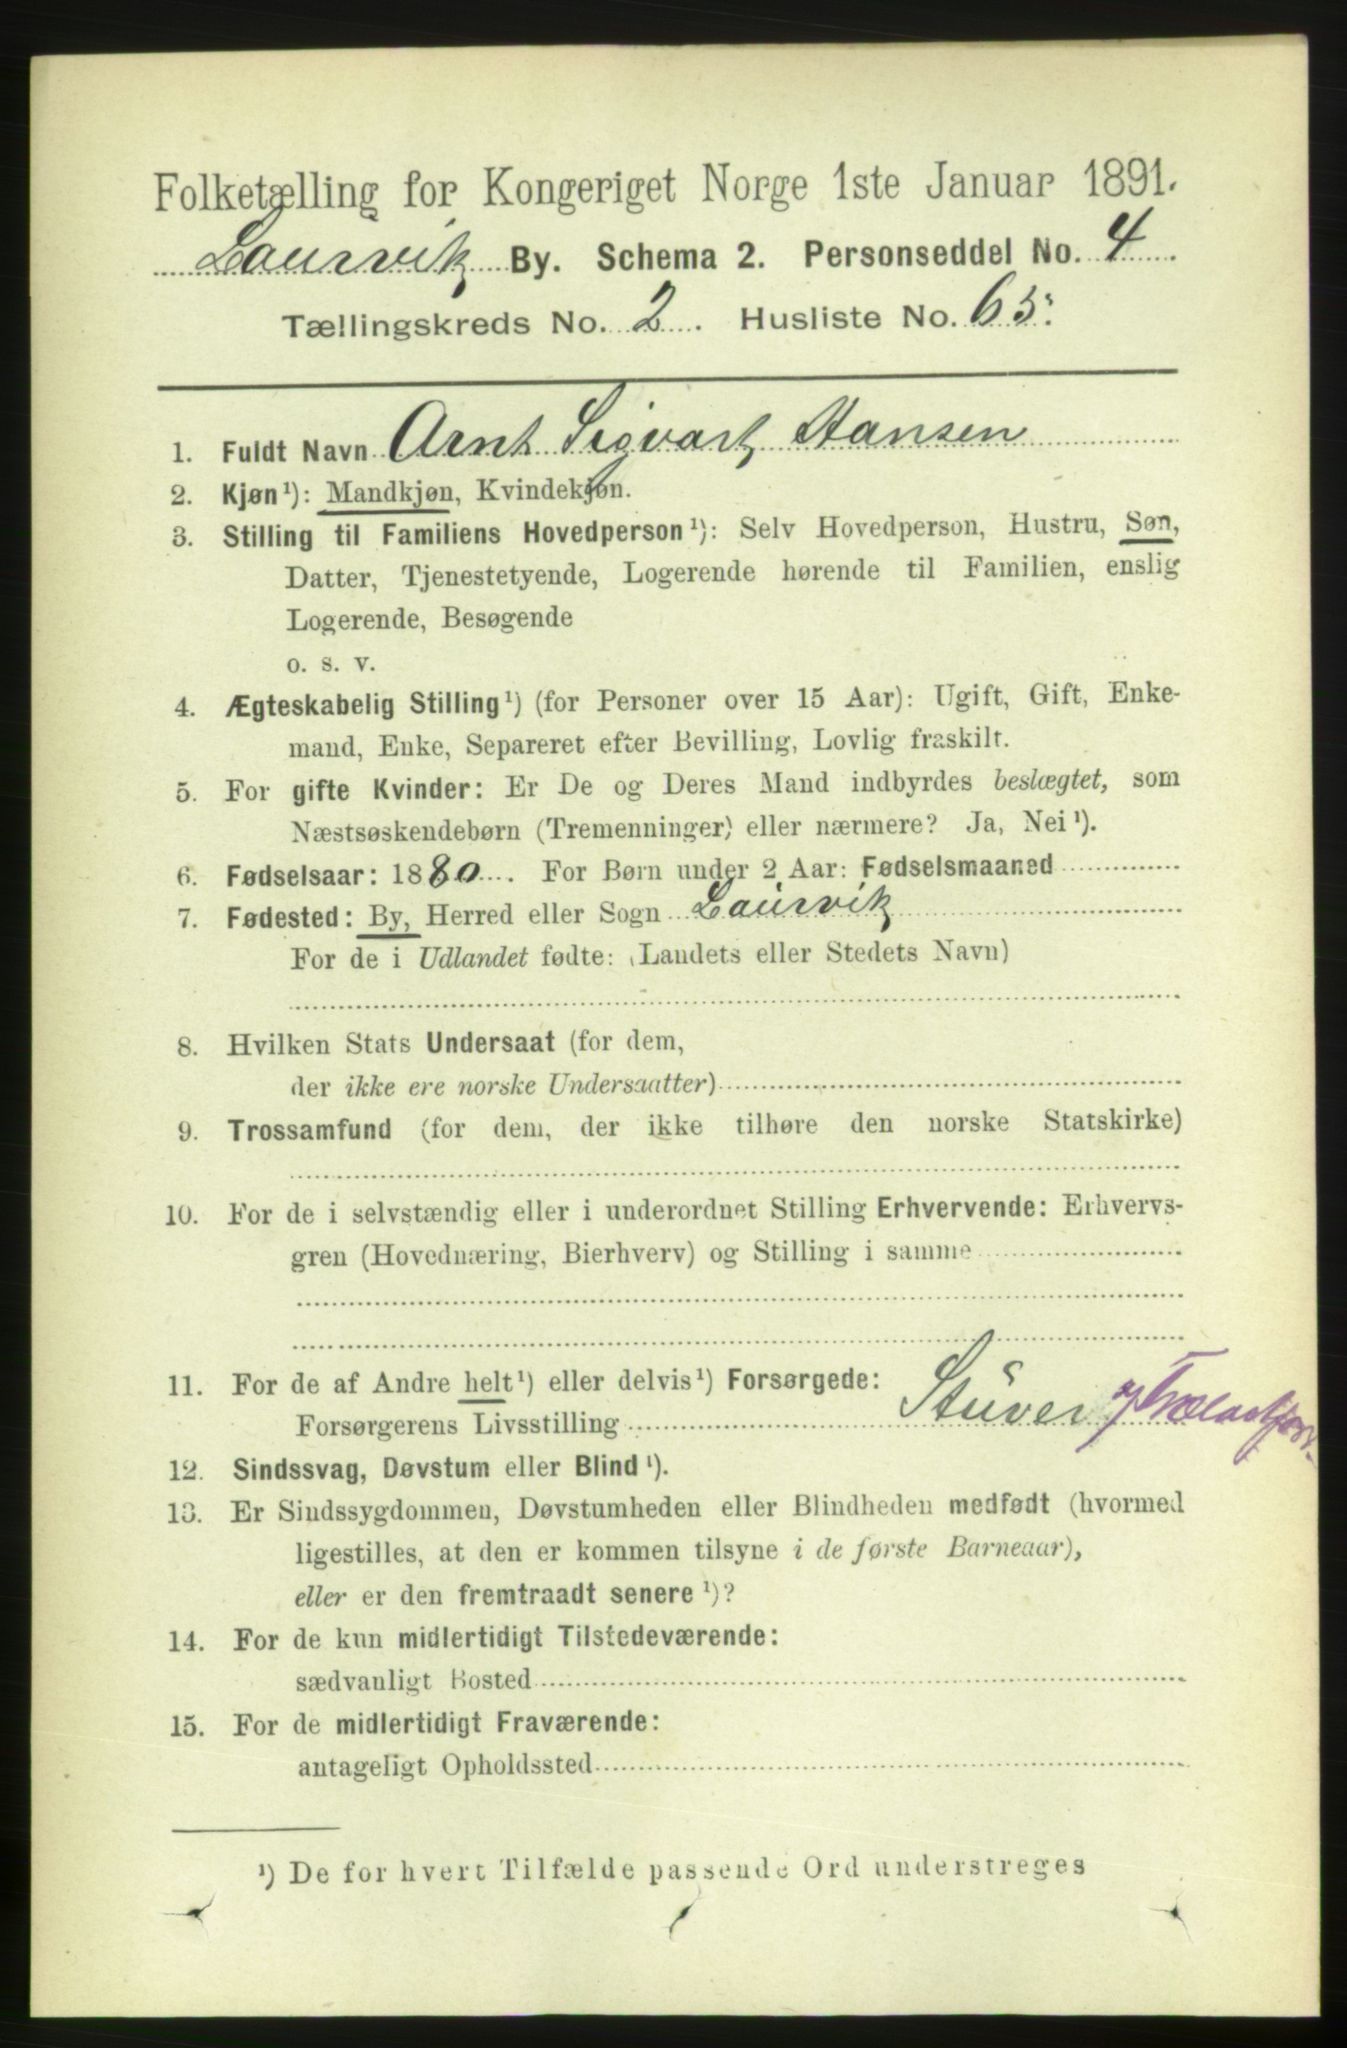 Folketælling for Kongeriget Norge 1ste Januar 1891.
Laurvik By. Schema 2. Personseddel No. 4
Tællingskreds No. 2. Husliste No. 65.
1. Fuldt Navn Arnt Sigvart Hansen
2. Kjøn¹): Mandkjøn, Kvindekjøn.
3. Stilling til Familiens Hovedperson¹): Selv Hovedperson, Hustru, Søn,
Datter, Tjenestetyende, Logerende hørende til Familien, enslig
Logerende, Besøgende
o. s. v.
4. Ægteskabelig Stilling¹) (for Personer over 15 Aar): Ugift, Gift, Enke-
mand, Enke, Separeret efter Bevilling, Lovlig fraskilt.
5. For gifte Kvinder: Er De og Deres Mand indbyrdes beslægtet, som
Næstsøskendebørn (Tremenninger) eller nærmere? Ja, Nei¹).
6. Fødselsaar: 1880. For Børn under 2 Aar: Fødselsmaaned
7. Fødested: By, Herred eller Sogn Laurvik
For de i Udlandet fødte: (Landets eller Stedets Navn)
8. Hvilken Stats Undersaat (for dem,
der ikke ere norske Undersaatter)
9. Trossamfund (for dem, der ikke tilhøre den norske Statskirke)
10. For de i selvstændig eller i underordnet Stilling Erhvervende: Erhvervs-
gren (Hovednæring, Bierhverv) og Stilling i samme
11. For de af Andre helt¹) eller delvis¹) Forsørgede:
Forsørgerens Livsstilling Stuver
12. Sindssvag, Døvstum eller Blind¹).
13. Er Sindssygdommen, Døvstumheden eller Blindheden medfødt (hvormed
ligestilles, at den er kommen tilsyne i de første Barneaar),
eller er den fremtraadt senere¹)?
14. For de kun midlertidigt Tilstedeværende:
sædvanligt Bosted
15. For de midlertidigt Fraværende:
antageligt Opholdssted
¹) De for hvert Tilfælde passende Ord understreges